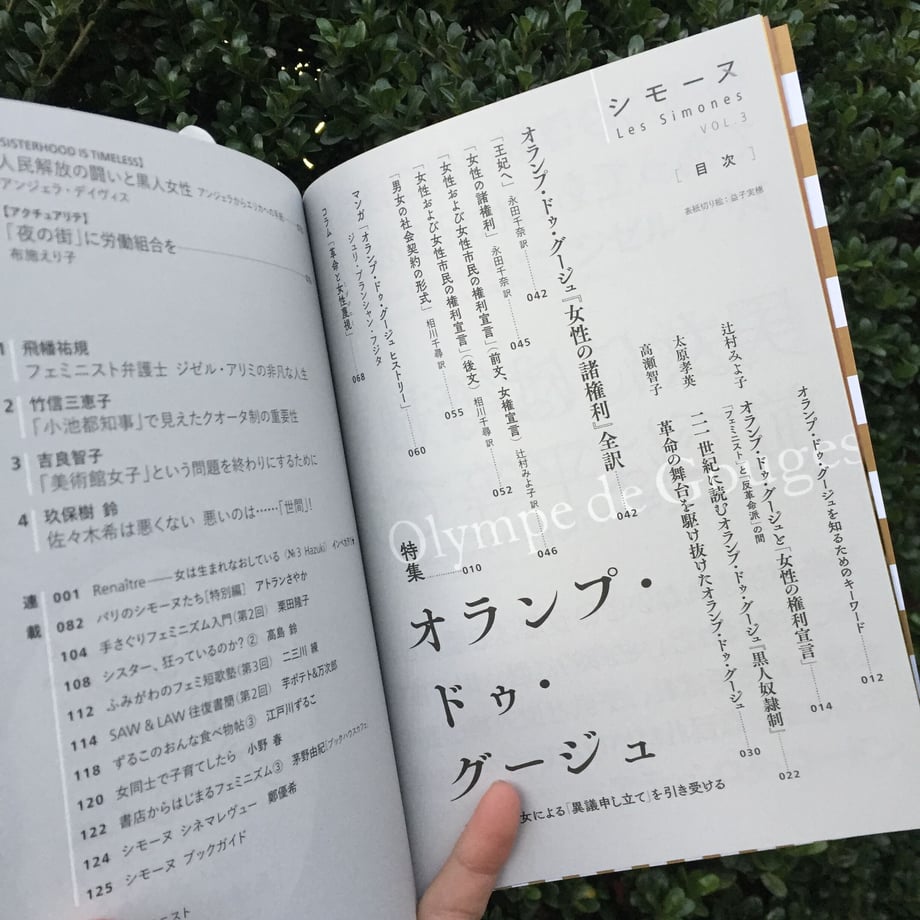 シモーヌ
Les Simones
VOL.3
［目次］
表紙切り絵：益子実穂
Olympe de Gouges
特集
010
オランプ・
ドゥ・
グージュ
女による「異議申し立て」を引き受ける
オランプ・ドゥ・グージュを知るためのキーワード 012
辻村みよ子
オランプ・ドゥ・グージュと「女性の権利宣言」 014
「フェミニスト」と「反革命派」の間
太原孝英
二一世紀に読むオランプ・ドゥ・グージュ『黒人奴隷制』 022
高瀬智子
革命の舞台を駆け抜けたオランプ・ドゥ・グージュ 030
オランプ・ドゥ・グージュ『女性の諸権利』全訳 042
「王妃へ」 永田千奈 訳 042
「女性の諸権利」 永田千奈 訳 045
「女性および女性市民の権利宣言」（前文、女権宣言） 辻村みよ子 訳 046
「女性および女性市民の権利宣言」（後文） 相川千尋 訳 052
「男女の社会契約の形式」 相川千尋 訳 055
マンガ「オランプ・ドゥ・グージュ ヒストリー」 060
ジュリ・ブランシャン・フジタ
コラム「革命と女性蔑視」 068
SISTERHOOD IS TIMELESS】
人民解放の闘いと黒人女性 アンジェラからエリカへの手紙
アンジェラ・デイヴィス
【アクチュアリテ】
「夜の街」に労働組合を
布施えり子
1 飛幡祐規
フェミニスト弁護士 ジゼル・アリミの非凡な人生
2 竹信三恵子
「小池都知事」で見えたクオータ制の重要性
3 吉良智子
「美術館女子」という問題を終わりにするために
4 玖保樹 鈴
佐々木希は悪くない 悪いのは……「世間」！
連載
001 Renaître——女は生まれなおしている（№3 Hazuki） インベカヲ
082 パリのシモーヌたち［特別編］ アトランさやか
104 手さぐりフェミニズム入門（第2回） 栗田隆子
108 シスター、狂っているのか？② 高島 鈴
112 ふみがわのフェミ短歌塾（第3回） 二三川 練
114 SAW & LAW 往復書簡（第2回） 芋ポテト&万次郎
118 ずるこのおんな食べ物帖③ 江戸川ずるこ
120 女同士で子育てしたら 小野 春
122 書店からはじまるフェミニズム③ 茅野由紀［ブックハウスカフェ
124 シモーヌ シネマレヴュー 鄭優希
125 シモーヌ ブックガイド